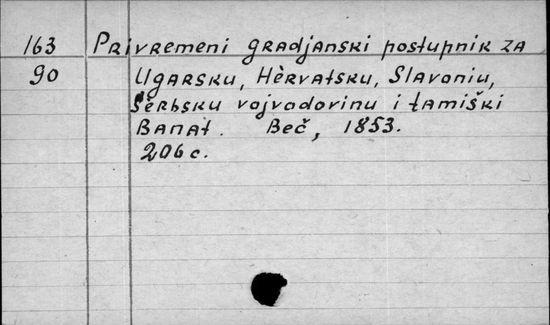 163 Privremeni gradjanski postupnik za
90 Ugarsku, Hèrvatsku, Slavoniu,
Sèrbsku vojvodovinu i tamiški
Banat. Beč, 1853.
206 c.